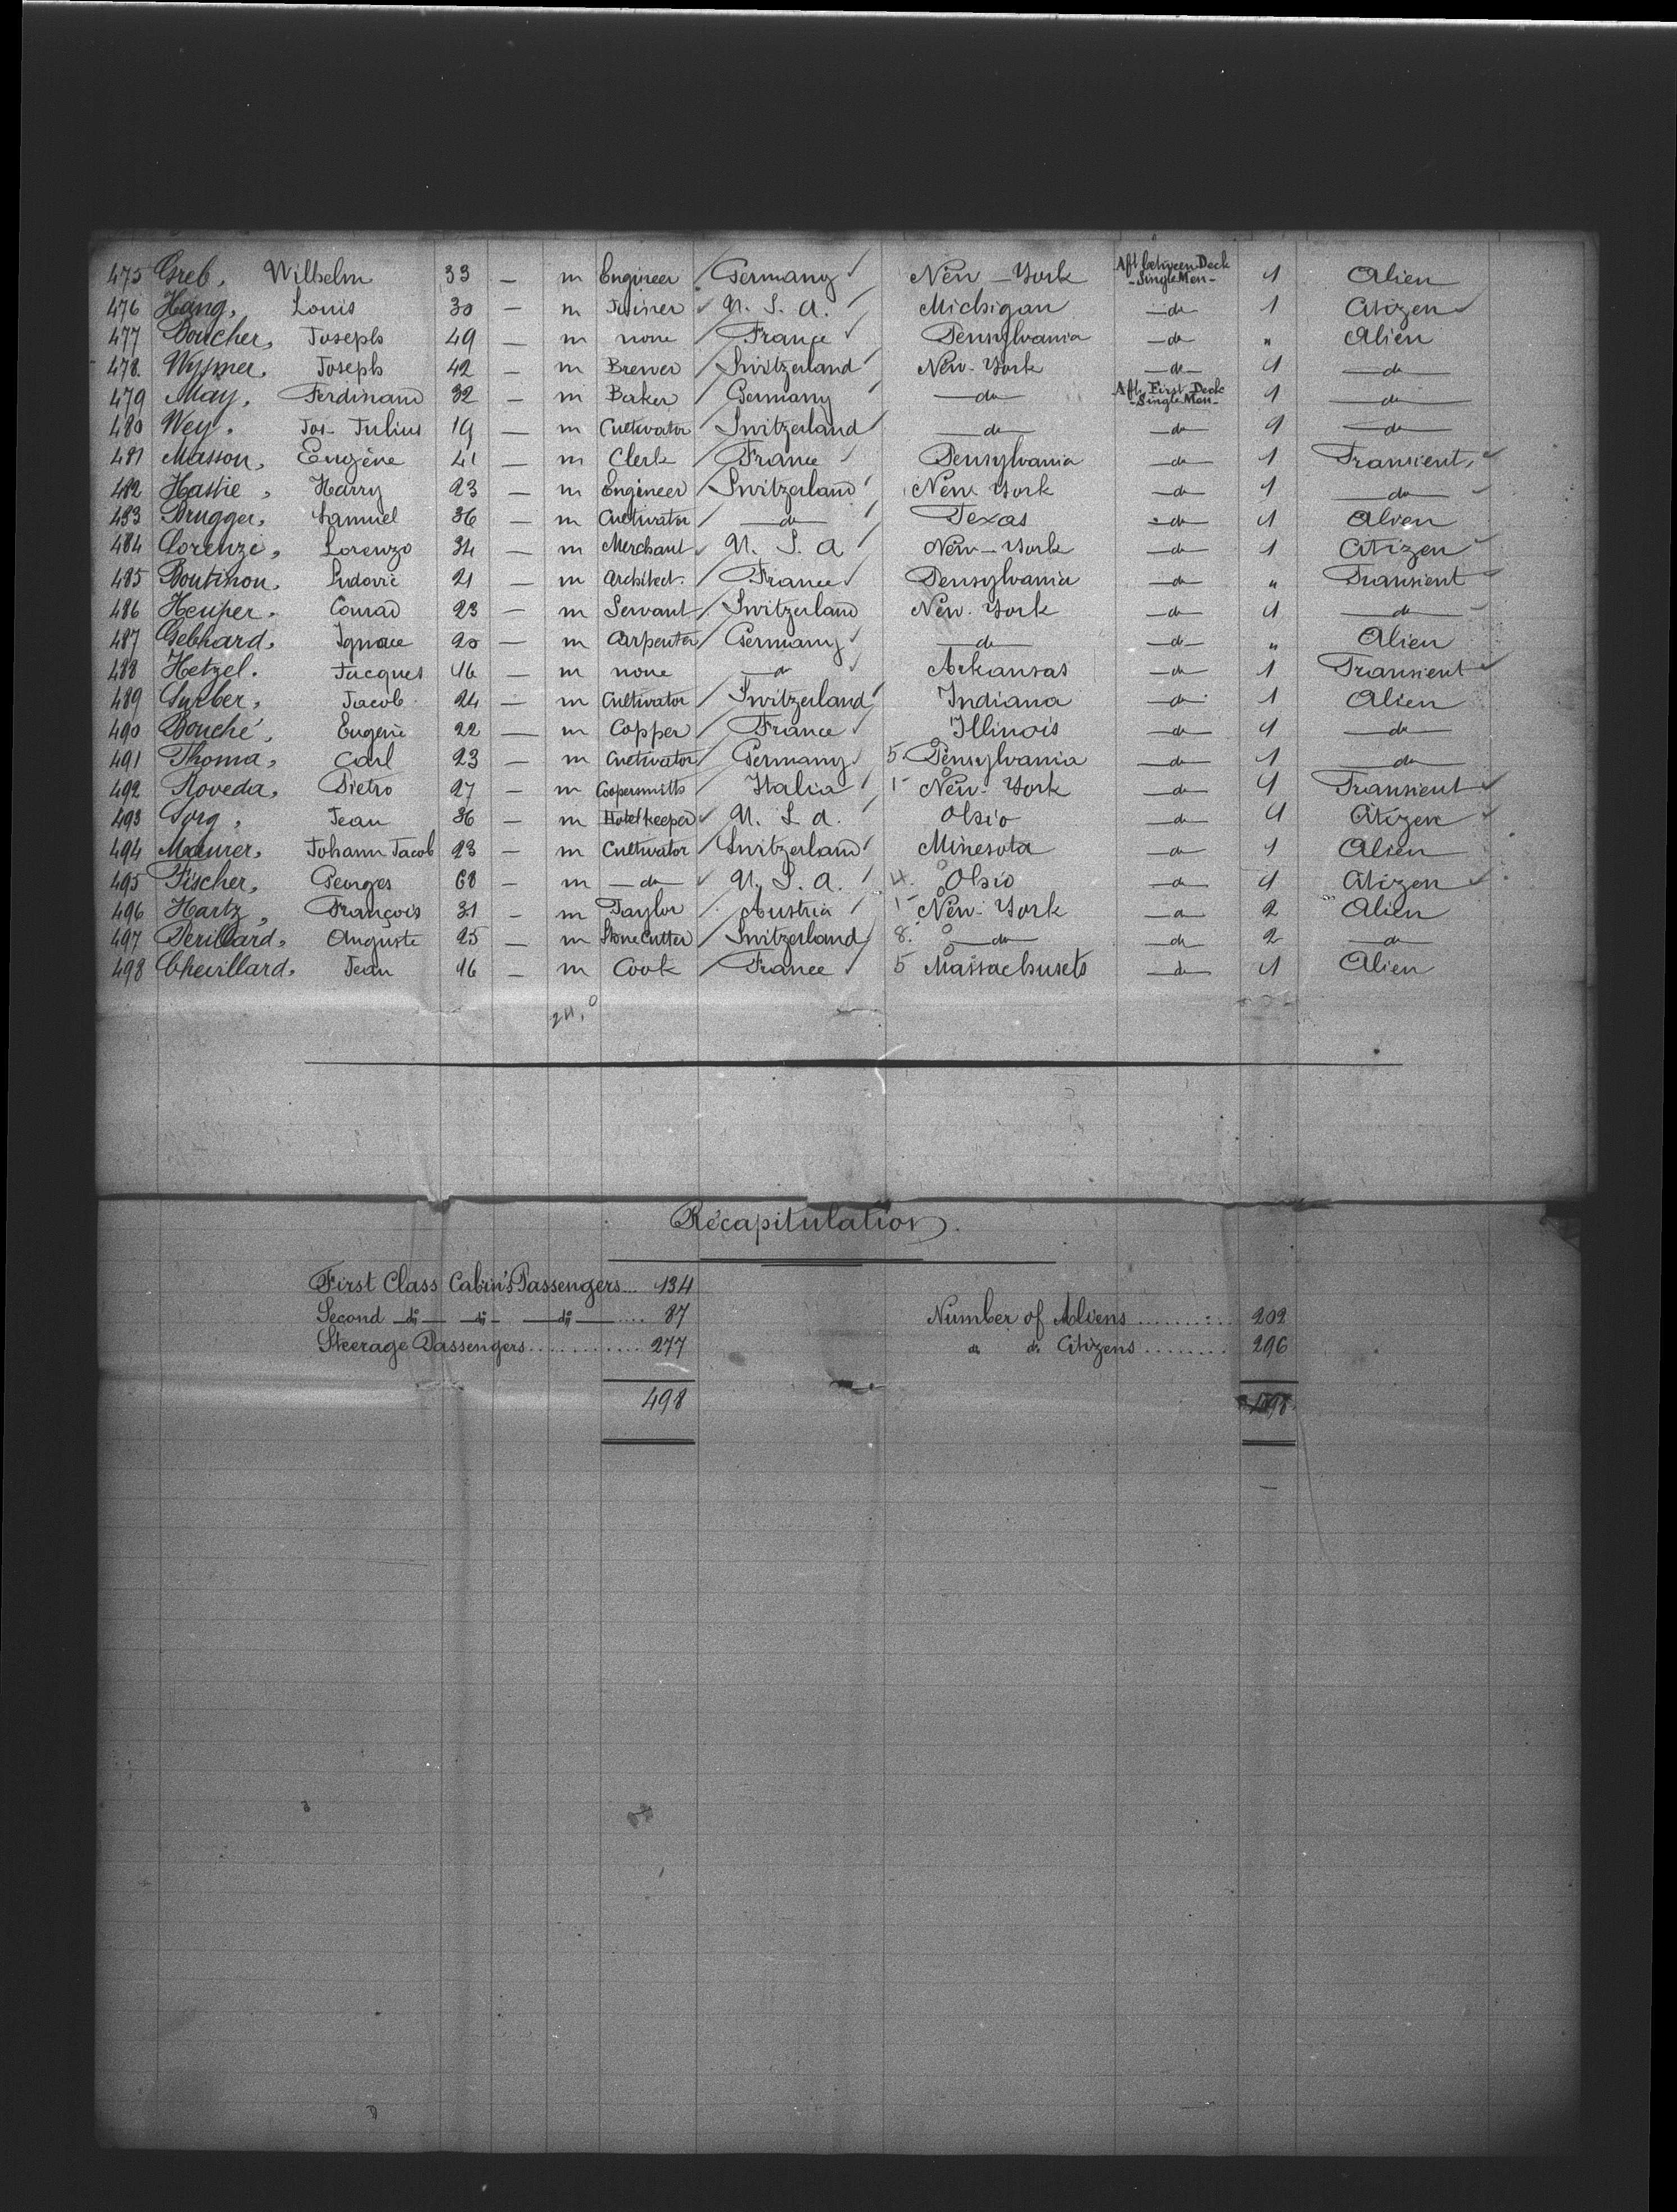 475 Greb, Wilhelm 33 — m Engineer Germany New-York Aft between Deck -Single Men- 1 Alien
476 Hang, Louis 30 — m Joiner U. S. A. Michigan do 1 Citizen
477 Boucher, Joseph 49 — m none France Pensylvania do " Alien
478. Joseph 42 — m Brewer Switzerland New-York do 1 do
479 May, Ferdinand 32 — m Baker Germany do Aft First Deck -Single Men- 1 do
480 Wey, Jos. Julius 19 — m Cultivator Switzerland do do 1 do
481 Masson, Eugène 41 — m Clerk France Pensylvania do 1 Transient
482 Hastie, Harry 23 — m Engineer Switzerland New York do 1 do
483 Brugger, Samuel 36 — m Cultivator do Texas do 1 Alien
484 Lorenzi, Lorenzo 34 — m Merchant U. S. A New-York do 1 Citizen
485 Boutinon, Ludovic 21 — m Architect. France Pensylvania do " Transient
486 Heuper, Conrad 23 — m Servant Switzerland New-York do 1 do
487 Gebhard, Ignace 20 — m Carpenter Germany do do " Alien
488 Hetzel. Jacques 16 — m none do Arkansas do 1 Transient
489 Surber, Jacob 24 — m Cultivator Switzerland Indiana do 1 Alien
490 Bouché, Eugène 22 — m Copper France Illinois do 1 do
491 Thoma, Carl 23 — m Cultivator Germany 5 Pensylvania do 1 do
492 Roveda, Pietro 27 — m Coopersmith Italia 1 New-York do 1 Transient
493 Sorg, Jean 36 — m Hotelkeeper U. S. A. Ohio do 1 Citizen
494 Maurer, Johann Jacob 23 — m Cultivator Switzerland Minesota do 1 Alien
495 Fischer, Georges 68 — m do U. S. A. 4. Ohio do 1 Citizen
496 Hartz, François 31 — m Taylor Austria 1 New-York do 2 Alien
497 Perillard, Auguste 25 — m Stone Cutter Switzerland 8. do do 2 do
498 Chevillard, Jean 16 — m Cook France 5 Massachusets do 1 Alien
24,0
Récapitulation.
First Class Cabin's Passengers... 134
Second do do do .... 87 Number of Aliens ......... 202
Steerage Passengers............ 277 do do Citizens ........ 296
498 498